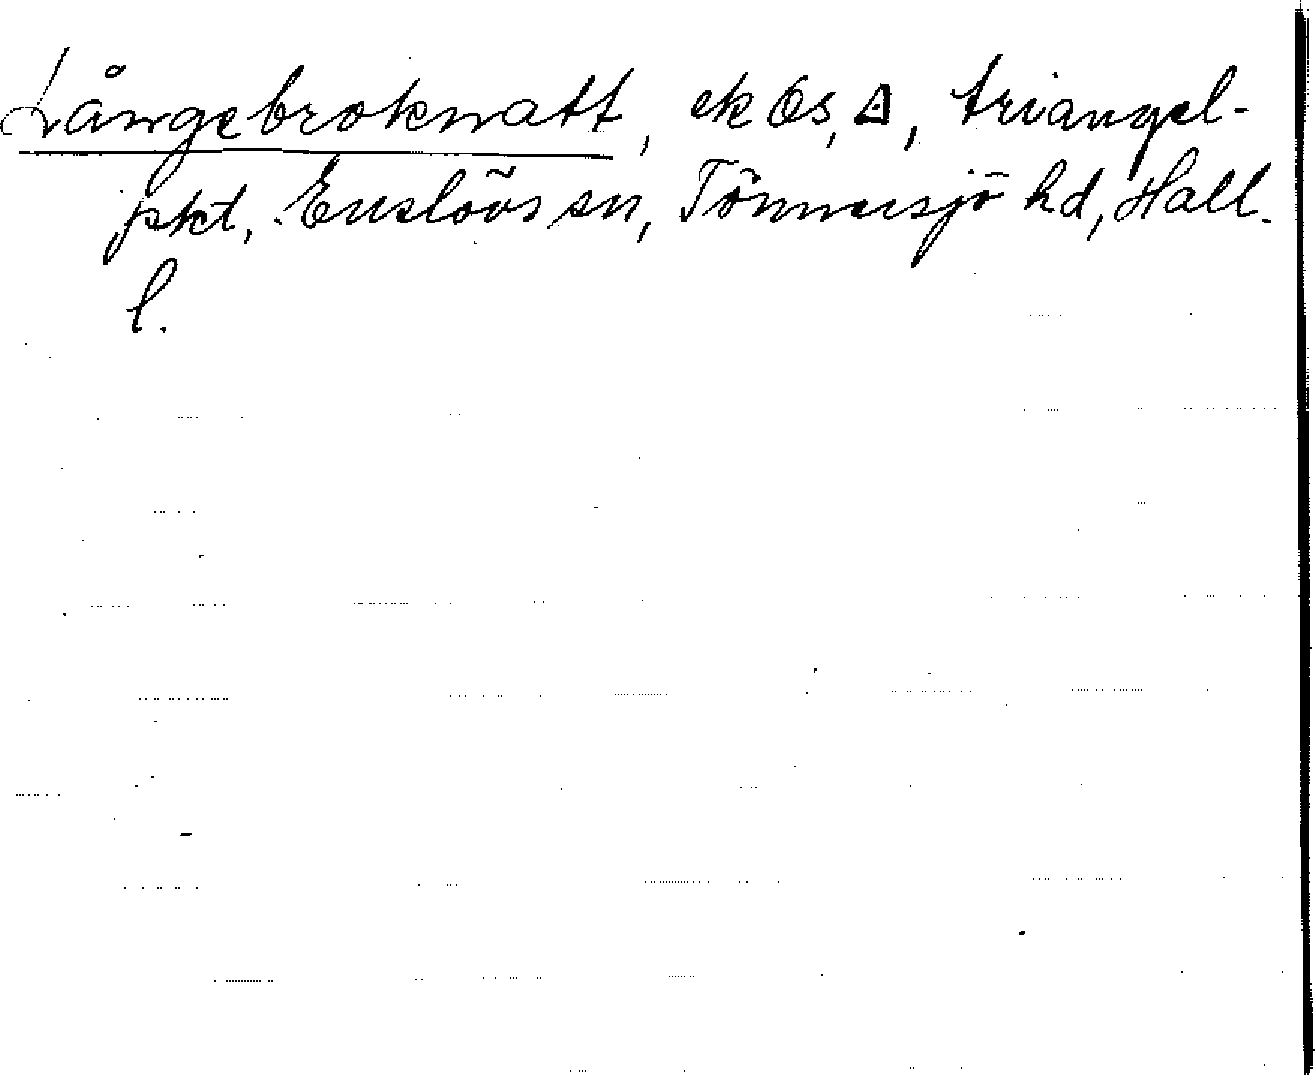 Långebroknatt, ek Ös, Δ, triangel-
pkt, Enslövs sn, Tönnersjö hd, Hall.
l.